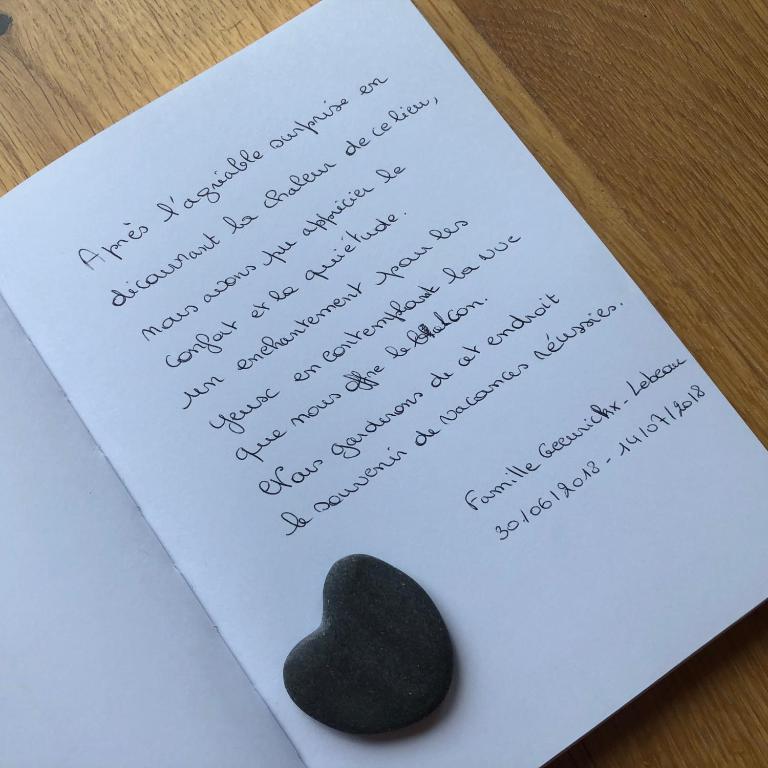 Après l'agréable surprise en
découvrant la chaleur de ce lieu,
nous avons pu apprécier le
confort et la quiétude.
un enchantement pour les
yeux en contemplant la vue
que nous offre le balcon.
Nous garderons de cet endroit
le souvenir de vacances réussies.
Famille - Lebeau
30/06/2018 - 14/07/2018